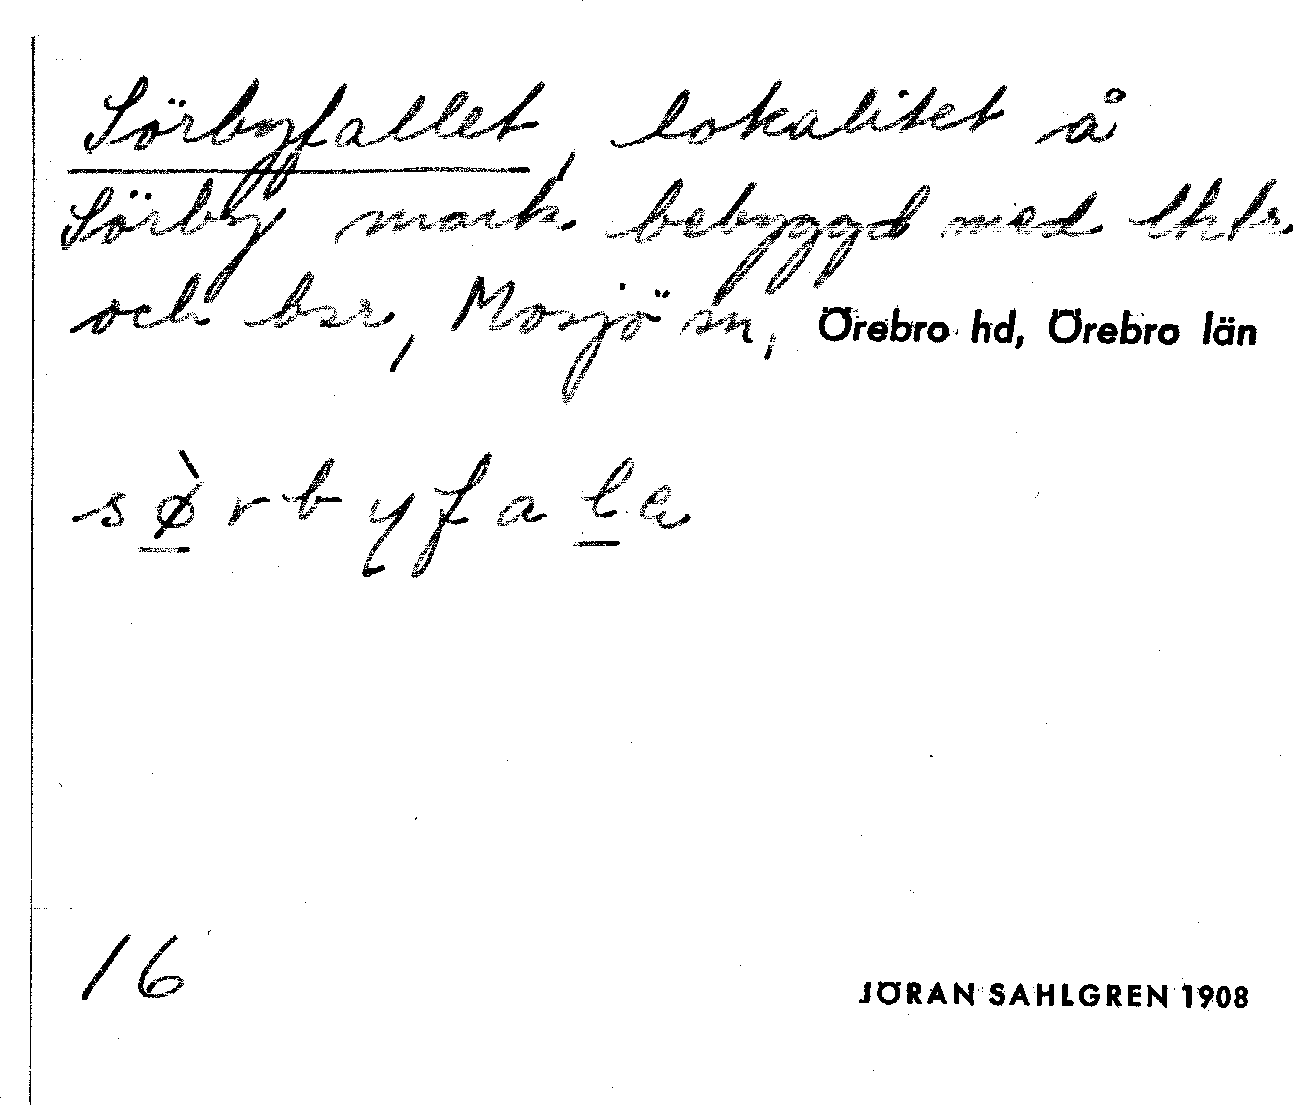 Sörbyfallet, lokalitet å
Sörby mark. bebyggd med lhtr.
och bsr, Mosjö sn, Örebro hd, Örebro län
sø̀rbyfala
16
JÖRAN SAHLGREN 1908